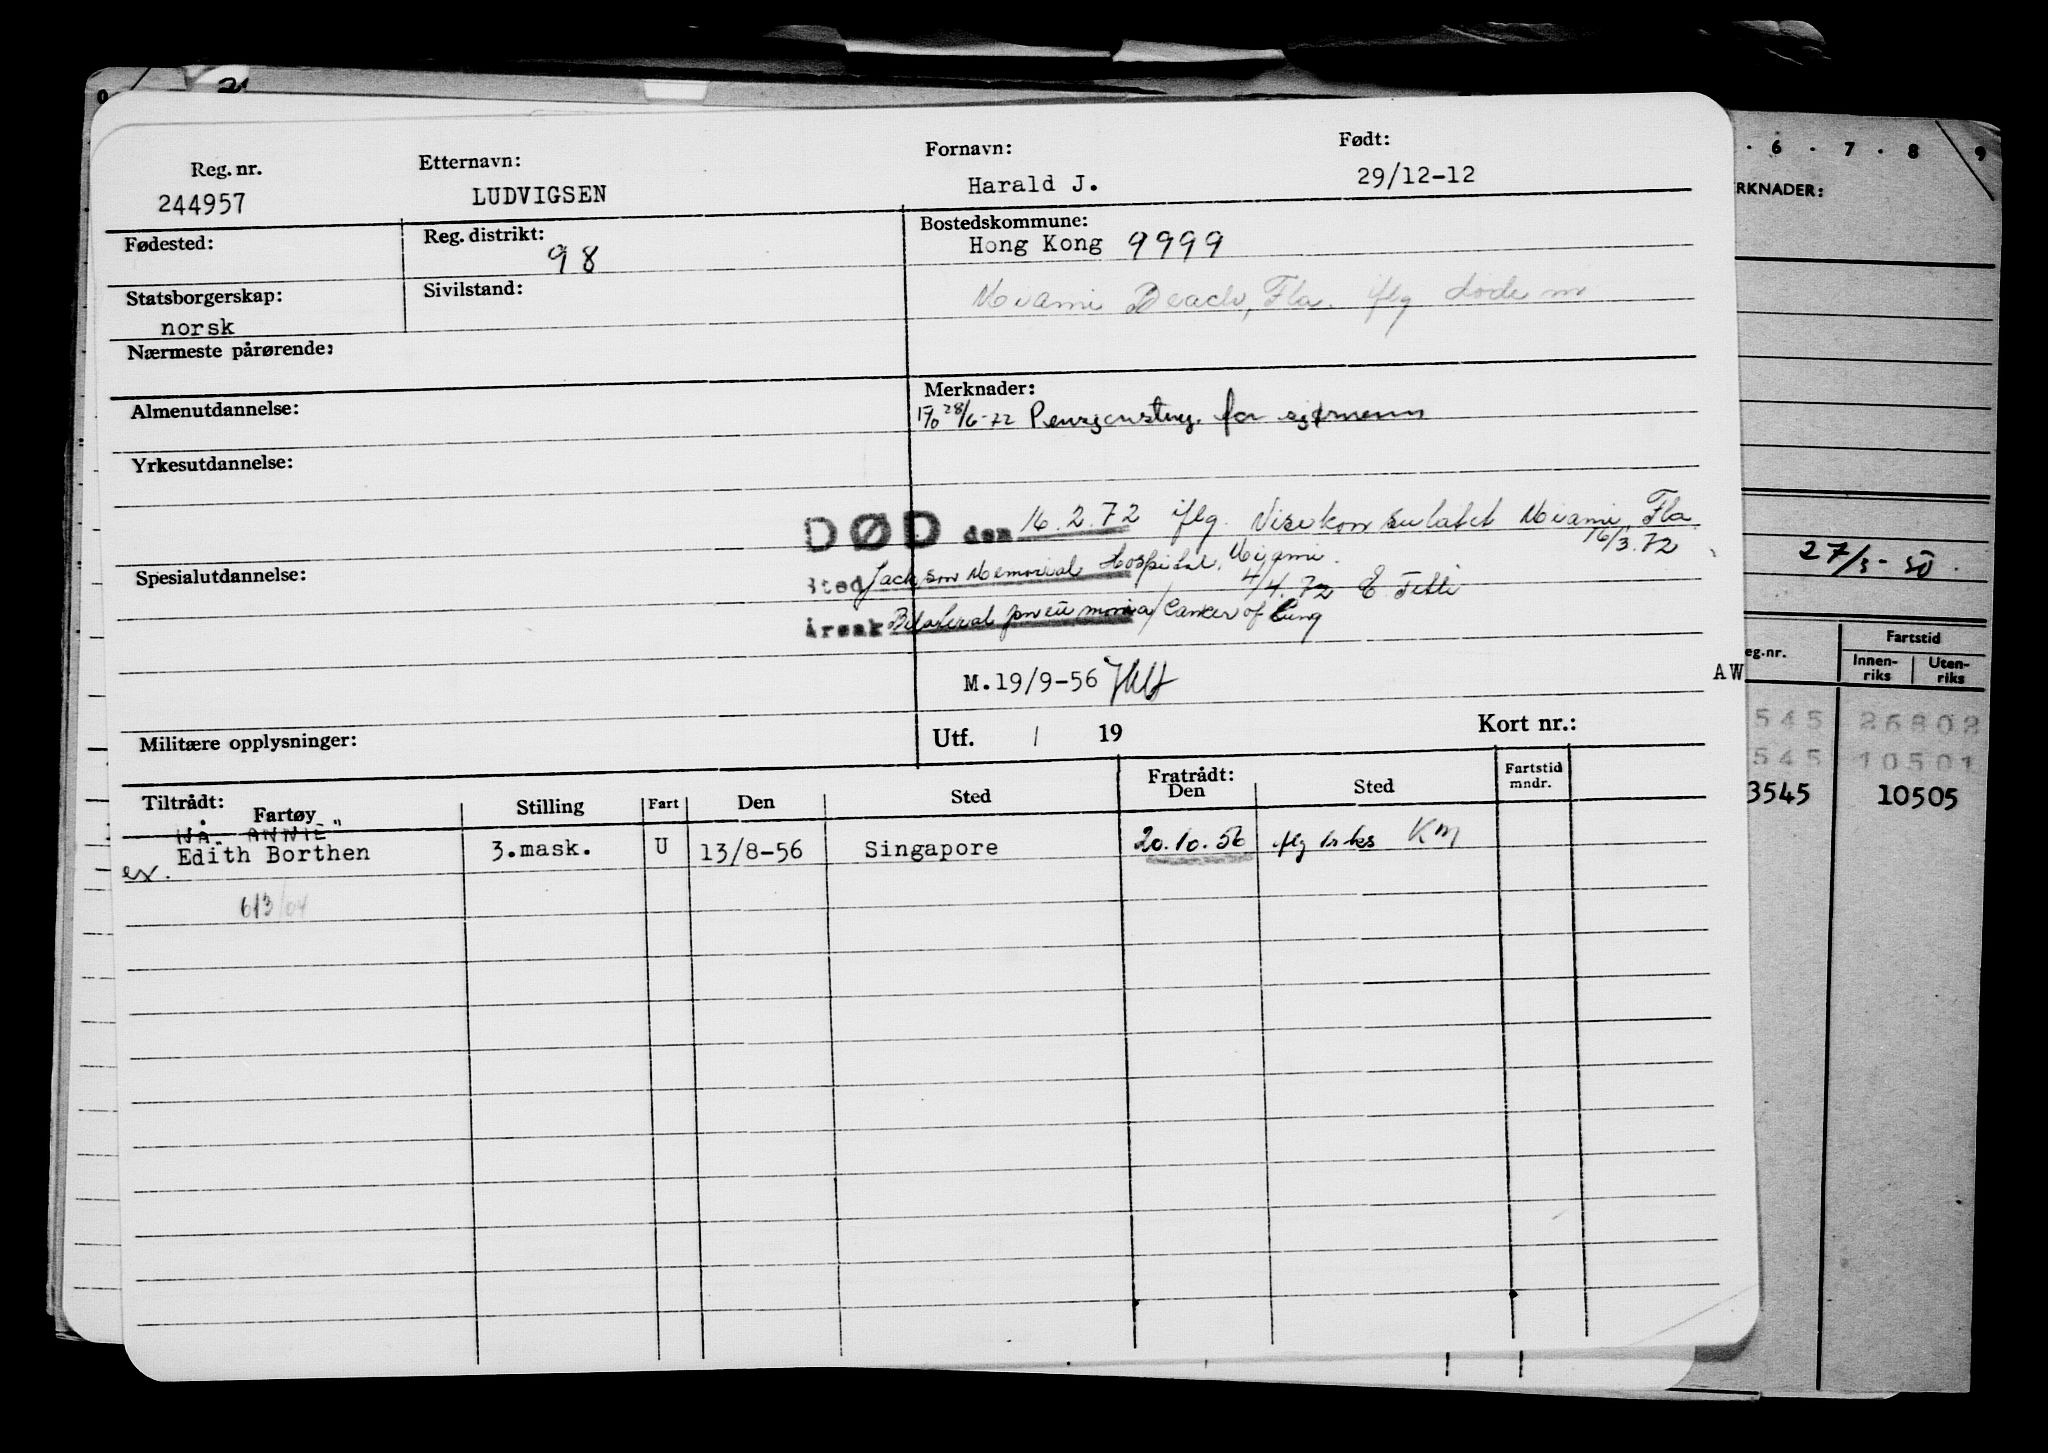 Reg. nr. Etternavn: Fornavn: Født:
244957 LUDVIGSEN Harald J. 29/12-12
Fødested: Reg. distrikt: 98 Bostedskommune:
Hong Kong 9999
Statsborgerskap: norsk Sivilstand:
Miami Beach, Fla. iflg døde m
Nærmeste pårørende:
Almenutdannelse: Merknader:
28/6-72 Pensjonstryg. for sjømenn
Yrkesutdannelse:
DØD den 16.2.72 iflg. Visekonsulatet Miami, Fla.
16/3.72
Spesialutdannelse: Sted Jackson Memorial Hospital, Miami.
4/4.72
Årsak Bilateral pneumonia/Cancer of Lung
M.19/9-56
AW
Militære opplysninger: Utf. / 19 Kort nr.:
Tiltrådt: Fartøy Stilling Fart Den Sted Fratrådt: Den Sted Fartstid mndr.
"ANNIE"
ex. Edith Borthen 3.mask. U 13/8-56 Singapore 20.10.56 KM
613/04
. 6 . 7 . 8 9
RKNADER:
27/3-50.
eg.nr. Fartstid
Innen-riks Uten-riks
545 26802
545 10501
3545 10505